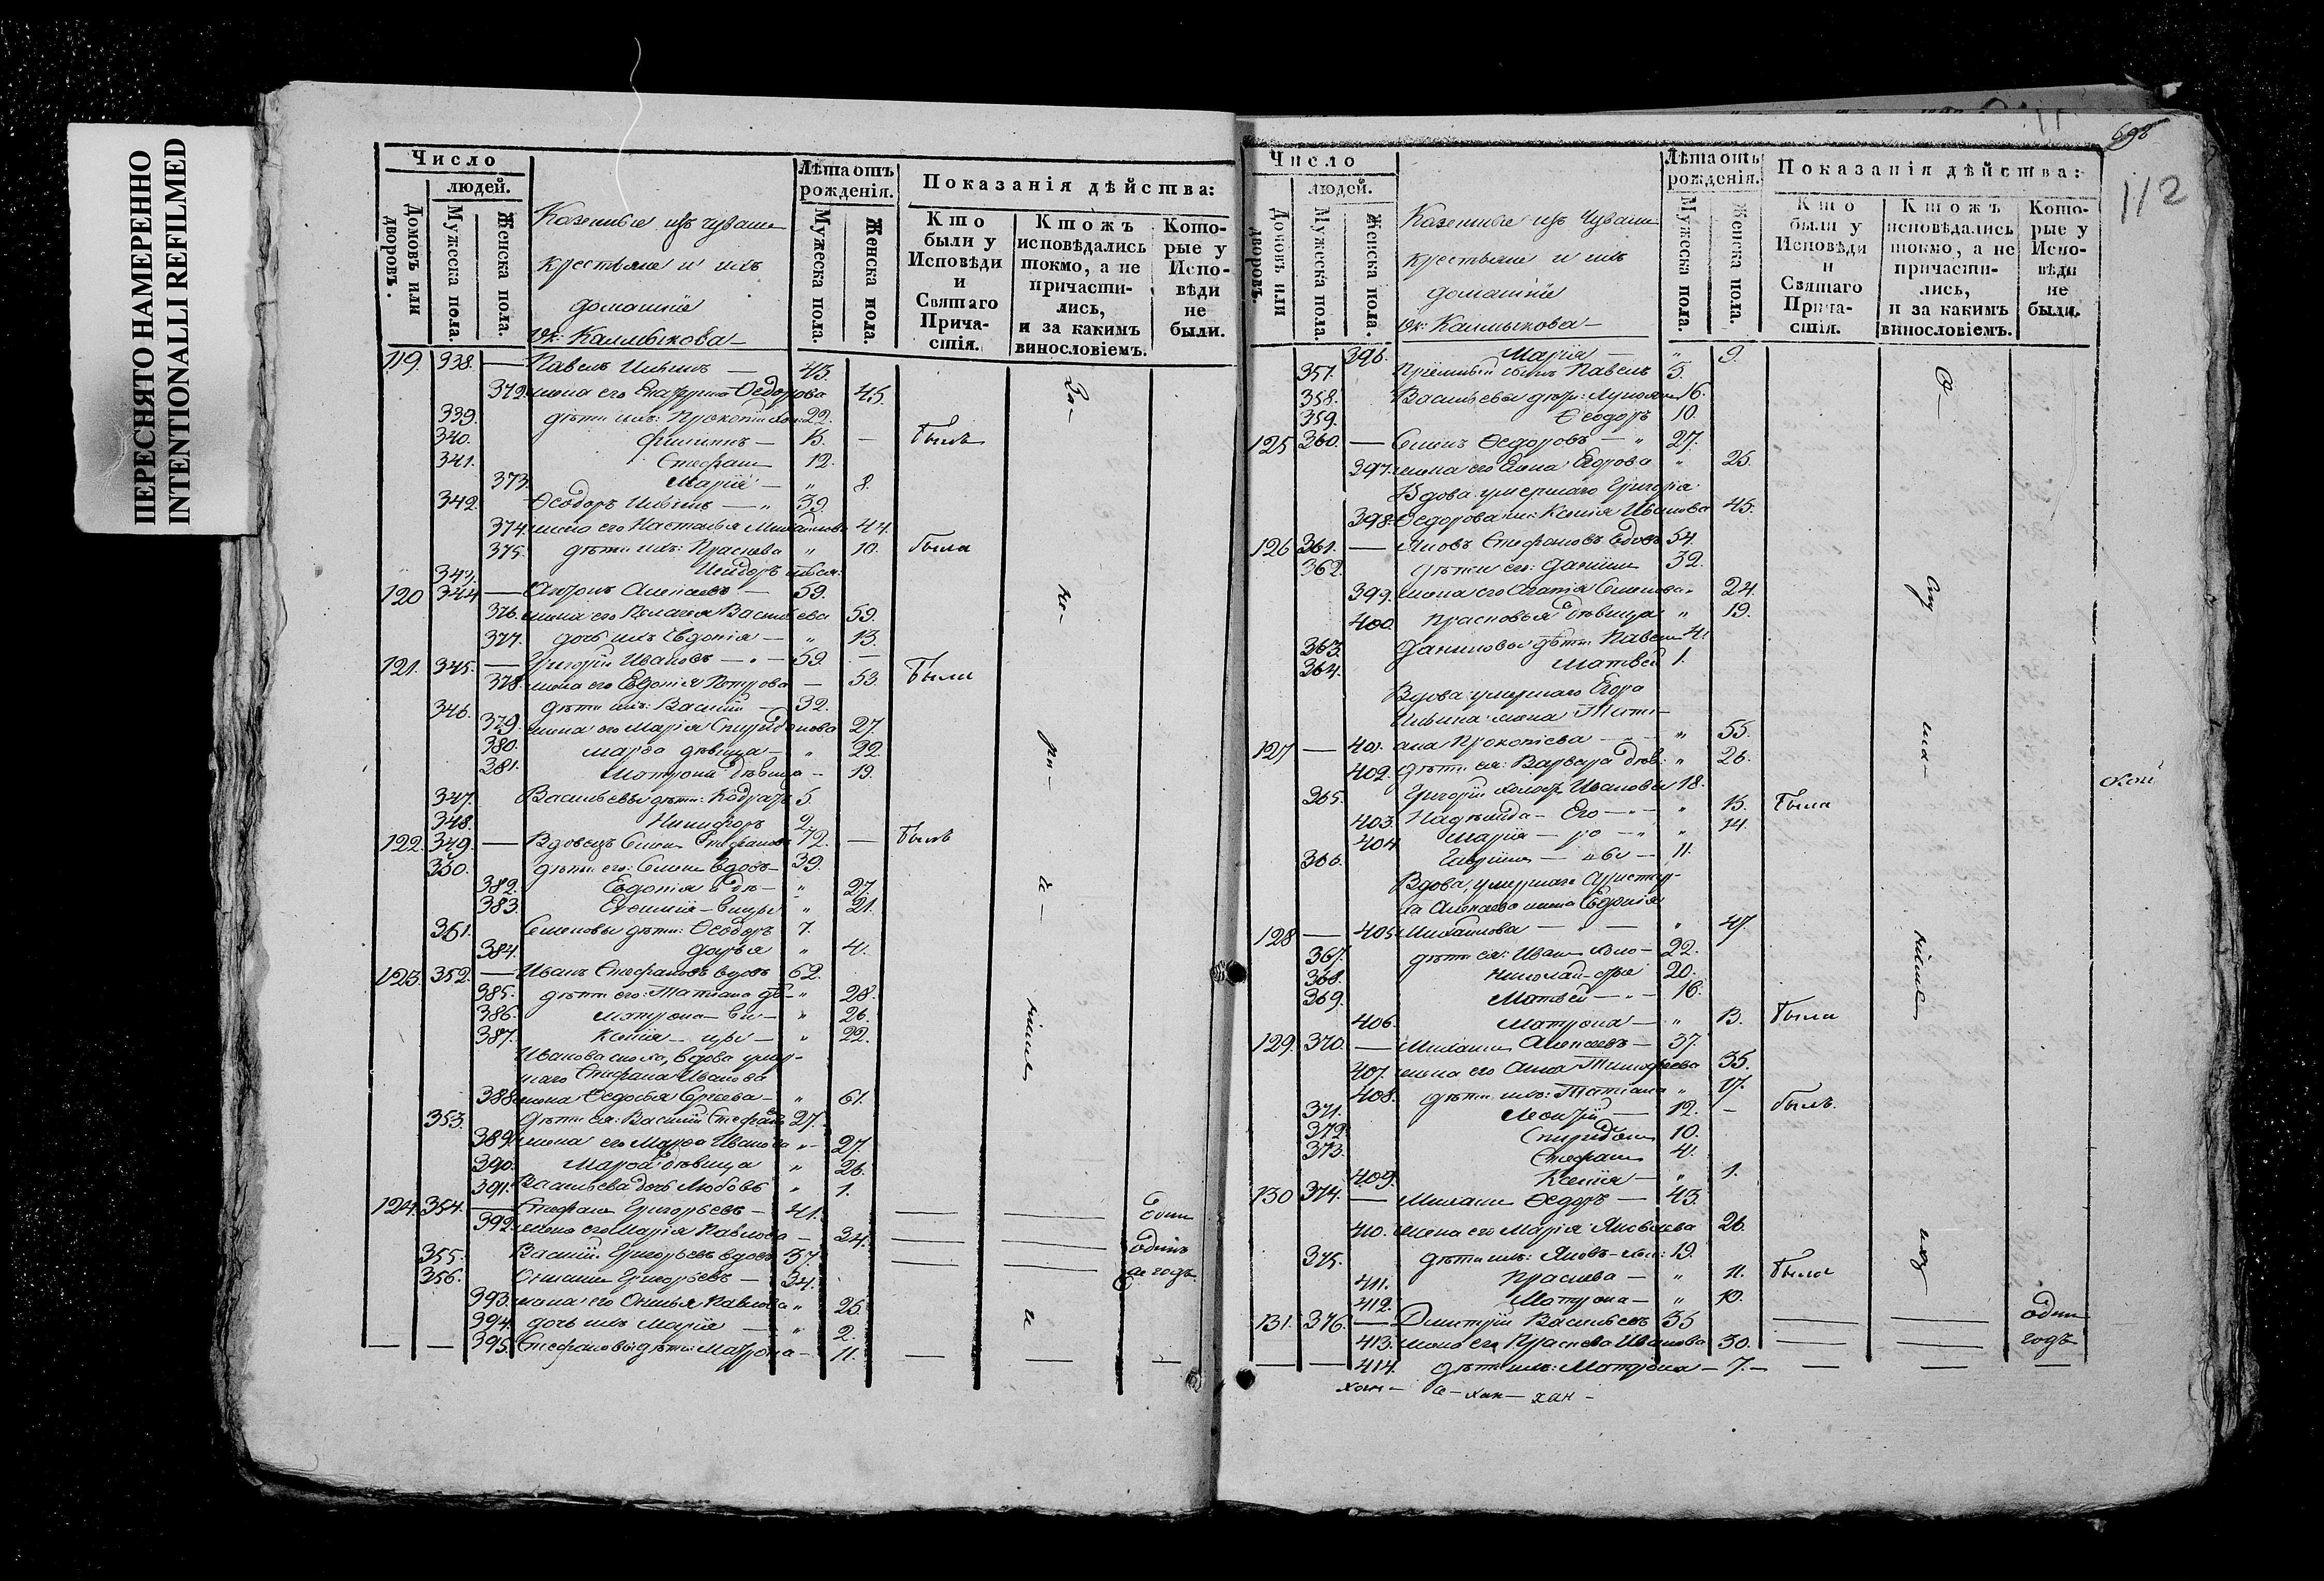 ПЕРЕСНЯТО НАМЕРЕННО
INTENTIONALLI REFILMED
Число
людей.
Домовъ или дворовъ.
Мужеска пола.
Женска пола.
Казенные изъ чувашъ
крестьяне и ихъ
домашніе
Ок: Калмыкова
Лѣта отъ рожденія.
Мужеска пола.
Женска пола.
Показанія дѣйства:
Кто были у Исповѣди и Святаго Причастія.
Ктожъ исповѣдались токмо, а не причастились, и за какимъ винословіемъ.
Которые у Исповѣди не были.
119. 338. — Павелъ Ильинъ — 43.
372. жена его Екатерина Ѳедорова 45.
339. дѣти ихъ: Прокопій хол: 22.
340. Филиппъ — 15. — былъ
341. Стефанъ 12.
373. Марія — " 8.
342. Ѳеодоръ Ильинъ — " 39.
374. жена его Настасья Михайлова 44.
375. дѣти ихъ: Праскева " 10. была
343. Исидоръ
120 344 — Антонъ Алексѣевъ — 59.
376. жена его Пелагея Васильева 59.
377. дочь ихъ Евдокія — " 13.
121. 345. — Григорій Ивановъ — " — 59. —
378. жена его Евдокія Петрова — 53. были
346. дѣти ихъ: Василій — 32.
379. жена его Марія Спиридонова 27.
380. Марѳа дѣвица — " 22.
381. Матрона дѣвица — 19.
347. Васильевы дѣти: Кодратъ 5.
348. Никифоръ 2.
122. 349. — Вдовецъ Семенъ Стефановъ 72. — былъ
350. дѣти его: Семенъ вдовъ — 39.
382. Евдокія дѣ — " 27.
383. Евѳимія — вицы " 21.
351. Семеновы дѣти: Ѳеодоръ 7.
384. Дарья " 4.
123. 352. — Иванъ Стефановъ вдовъ 62.
385. дѣти его: Татіана дѣ — " 28.
386. Матрона — ви — " 26.
387. Ксенія — цы — " 22.
Иванова сноха, вдова умер-
шаго Стефана Иванова
388. жена Ѳедосья Сергѣева — " 61.
353. Дѣти ея: Василій Стефановъ 27.
389. жена его Марѳа Иванова " 27.
390. Марѳа дѣвица " 26.
391. Васильева дочь Любовь " 1.
124. 354. — Стефанъ Григорьевъ — 41.
392. жена его Марія Павлова — 34.
355. Василій Григорьевъ вдовъ 37.
одинъ
356. Григорьевъ — 34.
годъ
393. жена его Павлова " 25.
394. дочь ихъ Марія — " 2.
395. Стефановы дѣти: Матрона — 11.
698
112
Число
людей.
Домовъ или дворовъ
Мужеска пола.
Женска пола.
Казенные изъ чувашъ
крестьяне и ихъ
домашніе
Ок: Калмыкова
Лѣта отъ рожденія.
Мужеска пола.
Женска пола.
Показанія дѣйства:
Кто были у Исповѣди и Святаго Причастія.
Ктожъ исповѣдались токмо, а не причастились, и за какимъ винословіемъ.
Которые у Исповѣди не были.
396. Марія — " 9.
357. Пріемный сынъ Павелъ 5.
358. Васильевы дѣти: 16.
359. Ѳеодоръ 10.
125 360. — Ѳедоровъ — " 27.
397. жена его Елена Егорова " 25.
Вдова умершаго Григорія
398. Ѳедорова жен: Ксенія Иванова 45.
126 361. — Яковъ Стефановъ вдовъ 54.
362. дѣти его: Даніилъ 32.
399. жена его Агафія Семенова " 24.
400. Прасковья дѣвица " 19.
363. Даниловы дѣти: Павелъ 4.
364. Матвей 1.
Вдова умершаго Егора
Ильина жена Тати-
127 — 401. ана Прокопіева — " 55.
402. дѣти ея: Варвара дѣв: " 26.
365. Григорій холостъ Ивановы 18.
403. Надежда — Его — " 15. были
404. Марія — " 14.
366. Гаврила — 11.
Вдова, умершаго
Алексѣева жена Евдокія
128 — 405. Михайлова — " — " 47.
367. дѣти ея: Иванъ холо — 22.
368. Николай — сты 20.
369. Матвей — " — 16.
406. Матрона — " 13. были
129. 370. — Михаилъ Алексѣевъ — 37.
407. жена его Анна Тимофеева 35.
408. дѣти ихъ: Татіана " 17.
371. Леонтій — 12. — былъ.
372. Спиридонъ 10.
373. Стефанъ 4.
409. Ксенія — " 1.
130 374. — Михаилъ Ѳедоръ — 43.
410. жена его Марія Яковлева 26.
375. дѣти ихъ: Яковъ хол: 19.
411. Праскева — " 11. была
412. Матрона — " 10.
131. 376. — Дмитрій Васильевъ 35 один
413. жена его Праскева Иванова 30. годъ
414. дѣти ихъ: Матрона — 7.